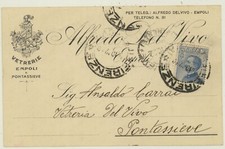 PER TELEG.: ALFREDO DELVIVO - EMPOLI
TELEFONO N. 31
Alfredo Del Vivo
VETRERIE
EMPOLI
PONTASSIEVE
FIRENZE
Sig Ansaldo Carrez
Vetreria Del Vivo
Pontassieve